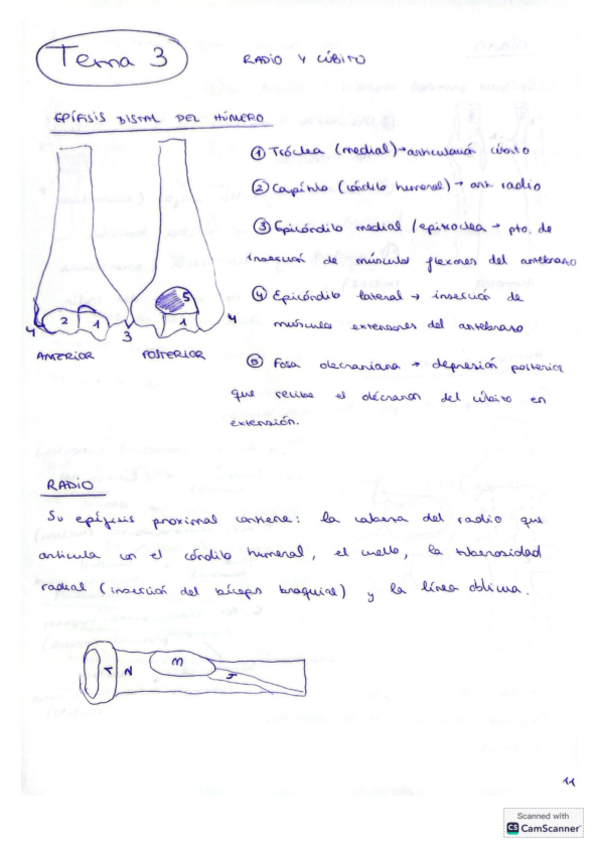 Tema 3
RADIO Y CÚBITO
EPÍFISIS DISTAL DEL HÚMERO
① Tróclea (medial) → articulación cúbito
② Capítulo (cóndilo humeral) → art. radio
③ Epicóndilo medial / epitroclea → pto. de
inserción de músculos flexores del antebrazo
④ Epicóndilo lateral → inserción de
músculos extensores del antebrazo
⑤ Fosa olecraniana → depresión posterior
que recibe el olécranon del cúbito en
extensión.
4 2 1 3
5 1 4
ANTERIOR
POSTERIOR
RADIO
Su epífisis proximal contiene: la cabeza del radio que
articula con el cóndilo humeral, el cuello, la tuberosidad
radial (inserción del bíceps braquial) y la línea oblicua.
1 2 3 4
11
Scanned with
CS CamScanner